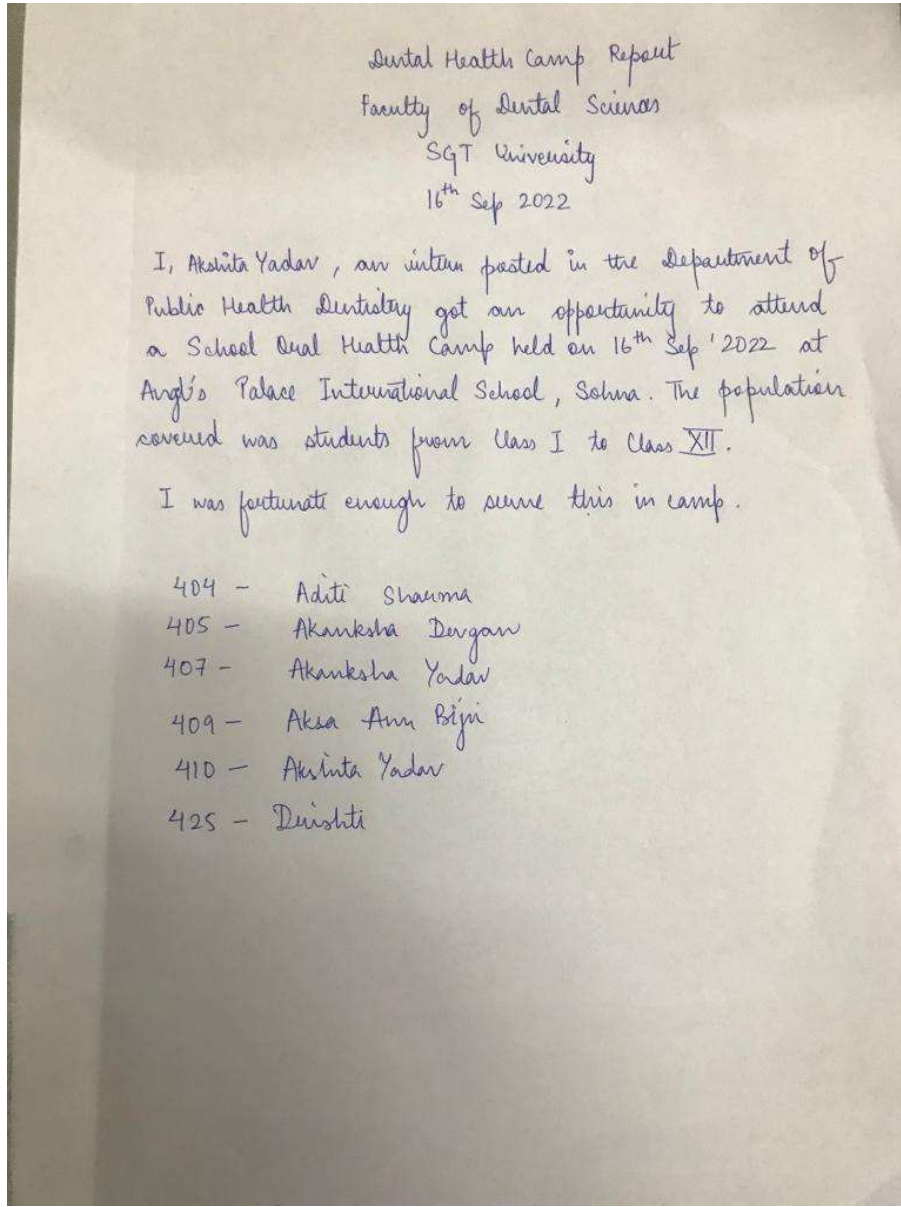 Dental Health Camp Report
Faculty of Dental Sciences
SGT University
16th Sep 2022
I, Akshita Yadav, an intern posted in the Department of
Public Health Dentistry got an opportunity to attend
a School Oral Health Camp held on 16th Sep '2022 at
Angl's Palace International School, Sohna. The population
covered was students from Class I to Class XII.
I was fortunate enough to serve this in camp.
404 - Aditi Sharma
405 - Akanksha Devgan
407 - Akanksha Yadav
409 - Aksa Ann Biji
410 - Akshita Yadav
425 - Drishti